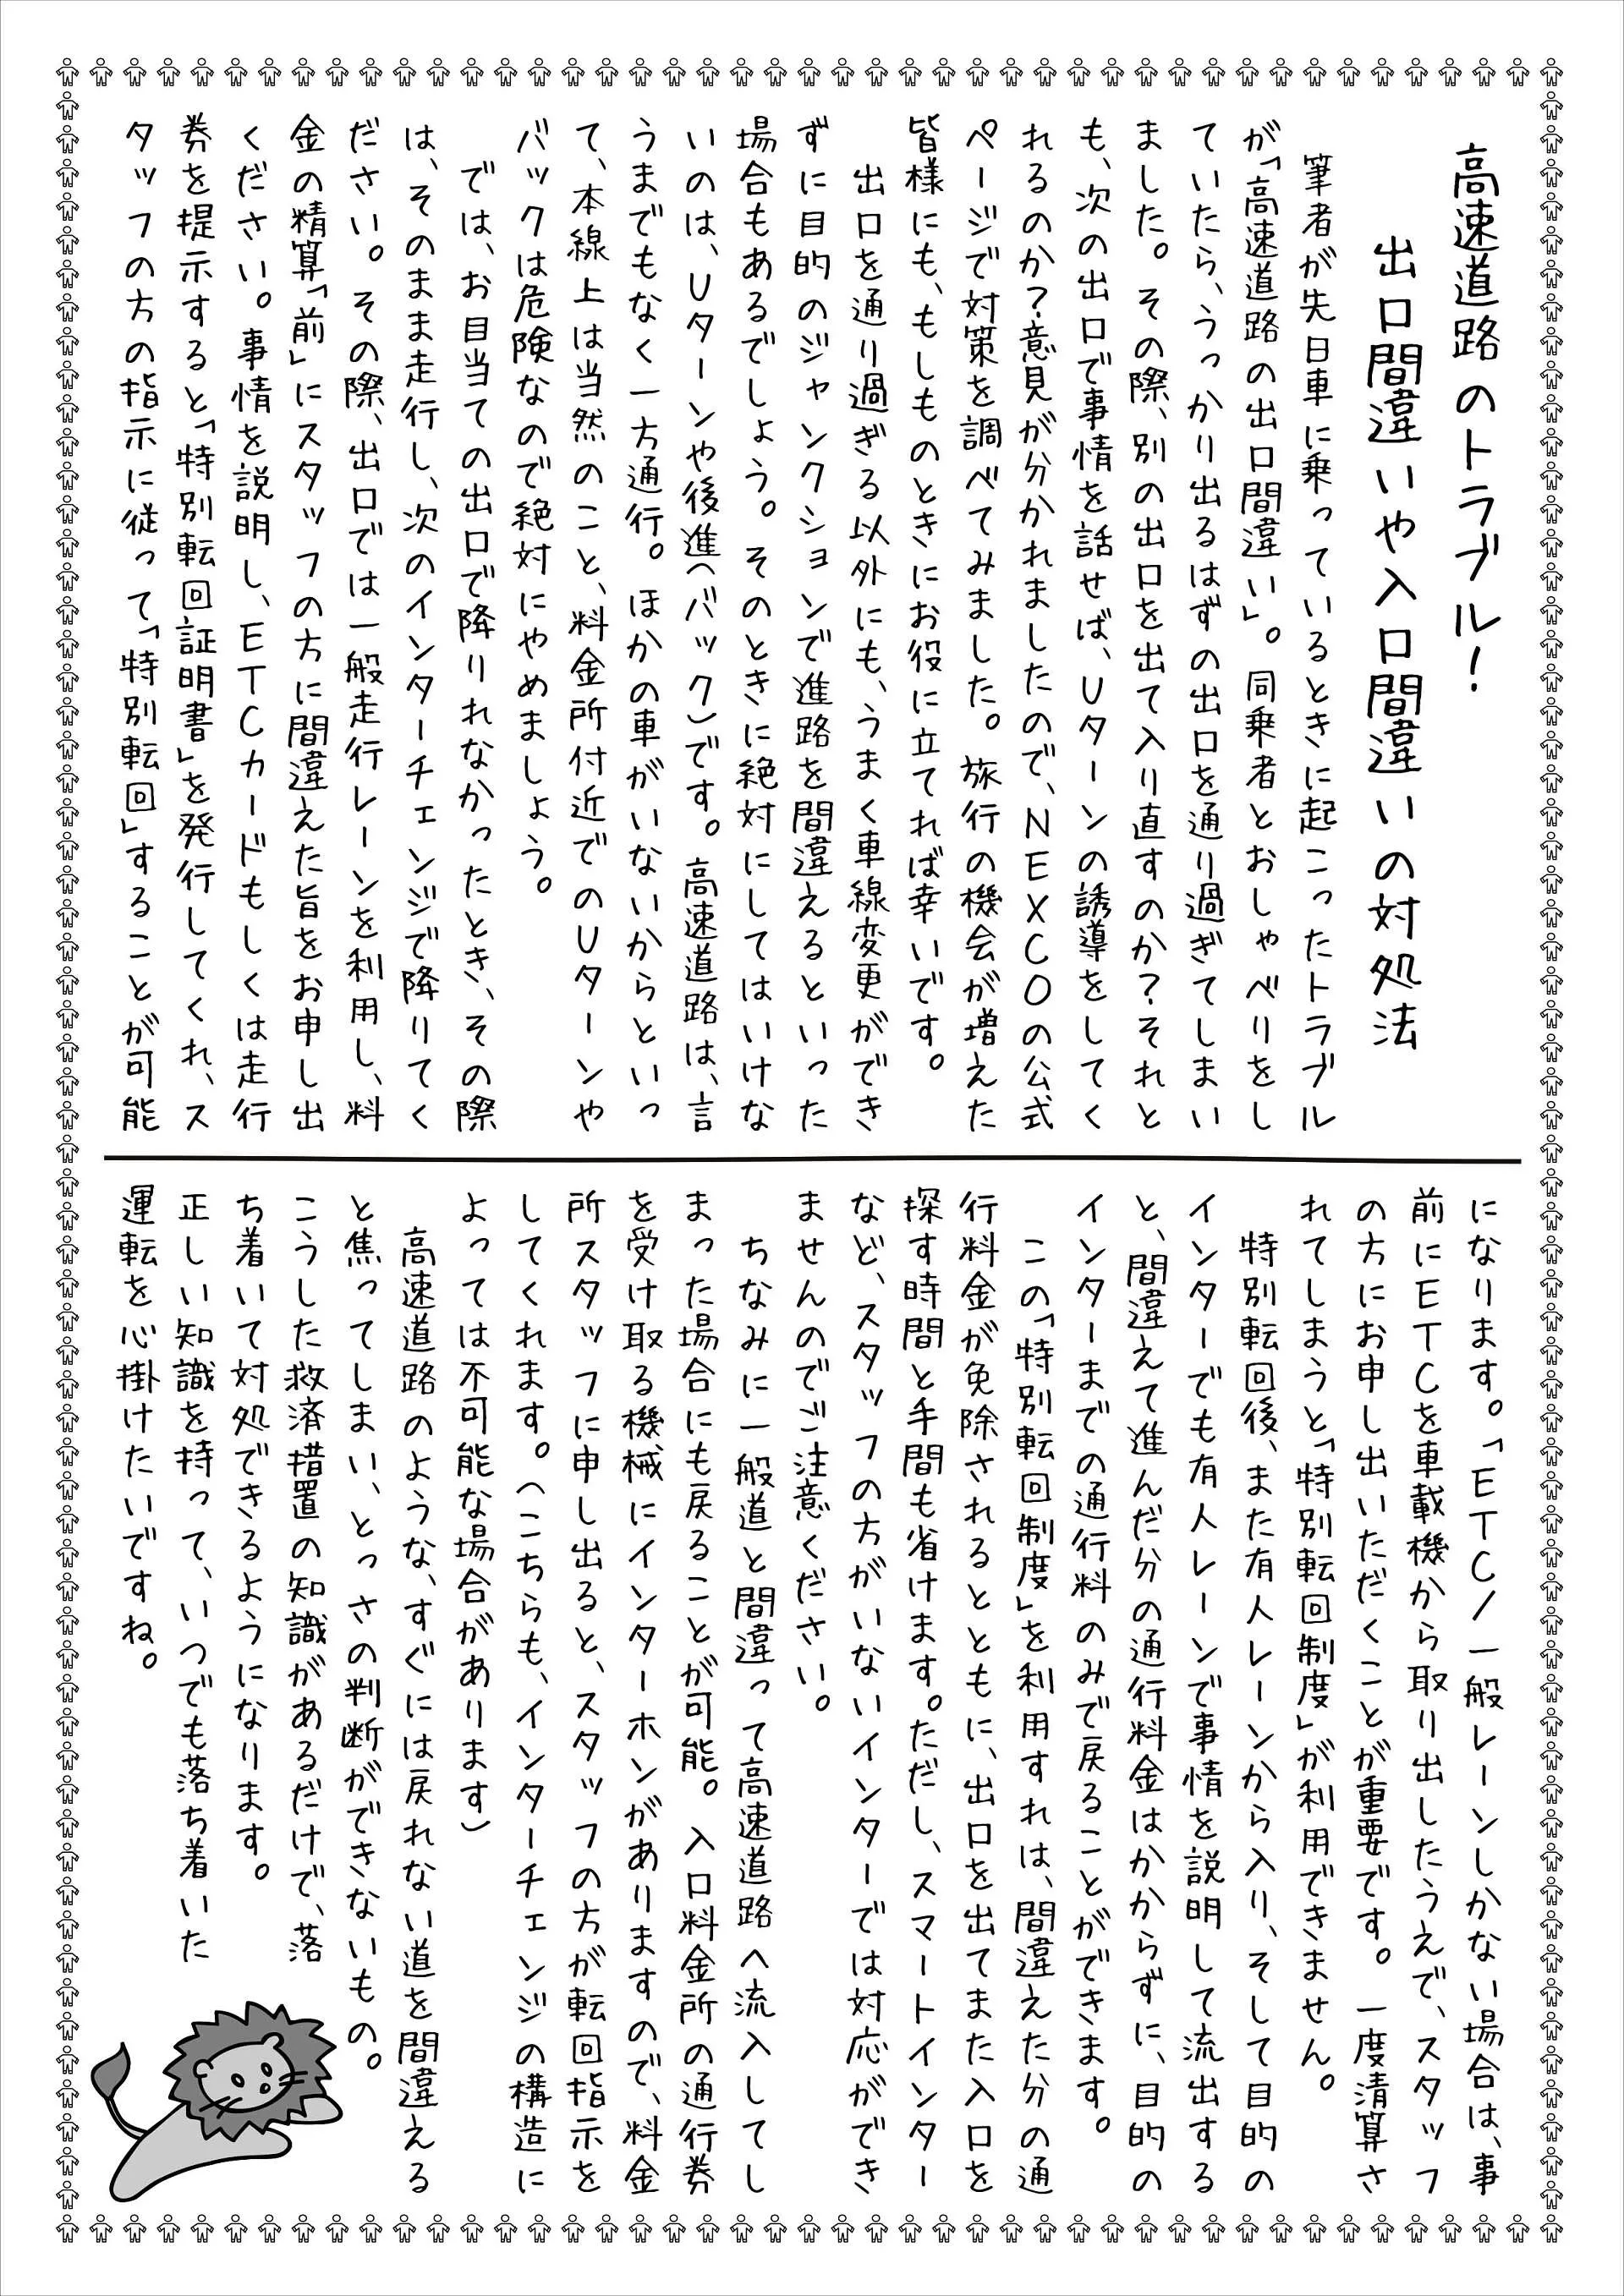 高速道路のトラブル！
出口間違いや入口間違いの対処法
筆者が先日車に乗っているときに起こったトラブル
が「高速道路の出口間違い」。同乗者とおしゃべりをし
ていたら、うっかり出るはずの出口を通り過ぎてしまい
ました。その際、別の出口を出て入り直すのか？それと
も、次の出口で事情を話せば、Uターンの誘導をしてく
れるのか？意見が分かれましたので、NEXCOの公式
ページで対策を調べてみました。旅行の機会が増えた
皆様にも、もしものときにお役に立てれば幸いです。
出口を通り過ぎる以外にも、うまく車線変更ができ
ずに目的のジャンクションで進路を間違えるといった
場合もあるでしょう。そのときに絶対にしてはいけな
いのは、Uターンや後進（バック）です。高速道路は、言
うまでもなく一方通行。ほかの車がいないからといっ
て、本線上は当然のこと、料金所付近でのUターンや
バックは危険なので絶対にやめましょう。
では、お目当ての出口で降りれなかったとき、その際
は、そのまま走行し、次のインターチェンジで降りてく
ださい。その際、出口では一般走行レーンを利用し、料
金の精算「前」にスタッフの方に間違えた旨をお申し出
ください。事情を説明し、ETCカードもしくは走行
券を提示すると「特別転回証明書」を発行してくれ、ス
タッフの方の指示に従って「特別転回」することが可能
になります。「ETC/一般レーンしかない場合は、事
前にETCを車載機から取り出したうえで、スタッフ
の方にお申し出いただくことが重要です。一度清算さ
れてしまうと「特別転回制度」が利用できません。
特別転回後、また有人レーンから入り、そして目的の
インターでも有人レーンで事情を説明して流出する
と、間違えて進んだ分の通行料金はかからずに、目的の
インターまでの通行料のみで戻ることができます。
この「特別転回制度」を利用すれは、間違えた分の通
行料金が免除されるとともに、出口を出てまた入口を
探す時間と手間も省けます。ただし、スマートインター
など、スタッフの方がいないインターでは対応ができ
ませんのでご注意ください。
ちなみに一般道と間違って高速道路へ流入してし
まった場合にも戻ることが可能。入口料金所の通行券
を受け取る機械にインターホンがありますので、料金
所スタッフに申し出ると、スタッフの方が転回指示を
してくれます。（こちらも、インターチェンジの構造に
よっては不可能な場合があります）
高速道路のような、すぐには戻れない道を間違える
と焦ってしまい、とっさの判断ができないもの。
こうした救済措置の知識があるだけで、落
ち着いて対処できるようになります。
正しい知識を持って、いつでも落ち着いた
運転を心掛けたいですね。